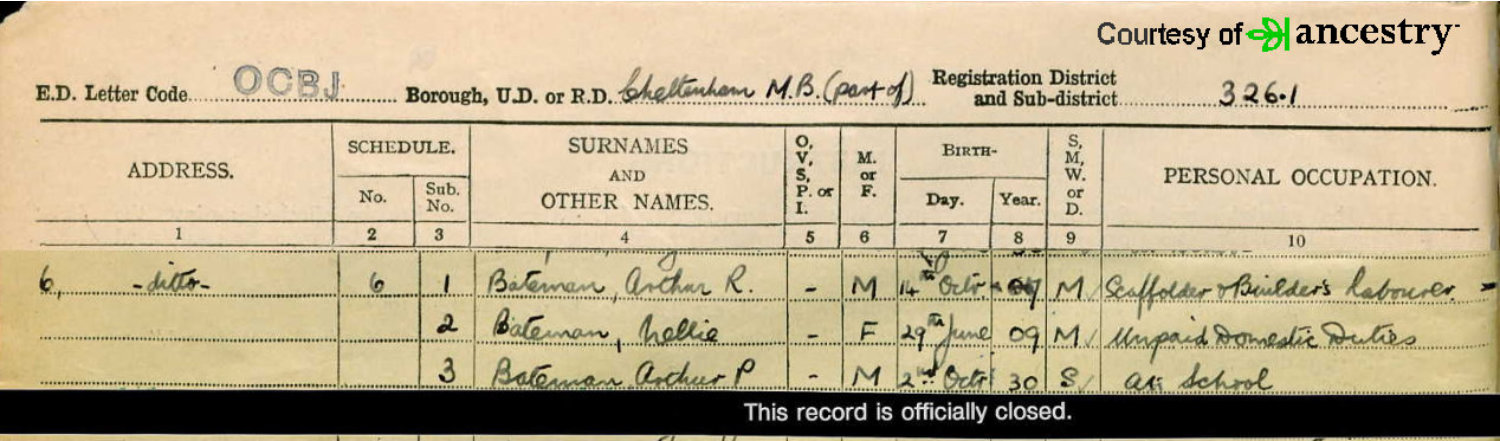 Courtesy of ancestry
E.D. Letter Code OCBJ Borough, U.D. or R.D. Cheltenham M.B. (part of) Registration District and Sub-district 326.1
ADDRESS. SCHEDULE. No. Sub. No. SURNAMES AND OTHER NAMES. O, V, S, P. or I. M. or F. BIRTH- Day. Year. S, M, W. or D. PERSONAL OCCUPATION.
1 2 3 4 5 6 7 8 9 10
6, -ditto- 6 1 Bateman, Arthur R. - M 14th Octr 07 M Scaffolder & Builder's Labourer
2 Bateman, Nellie - F 29th June 09 M Unpaid Domestic Duties
3 Bateman Arthur P - M 2nd Octr 30 S At School
This record is officially closed.